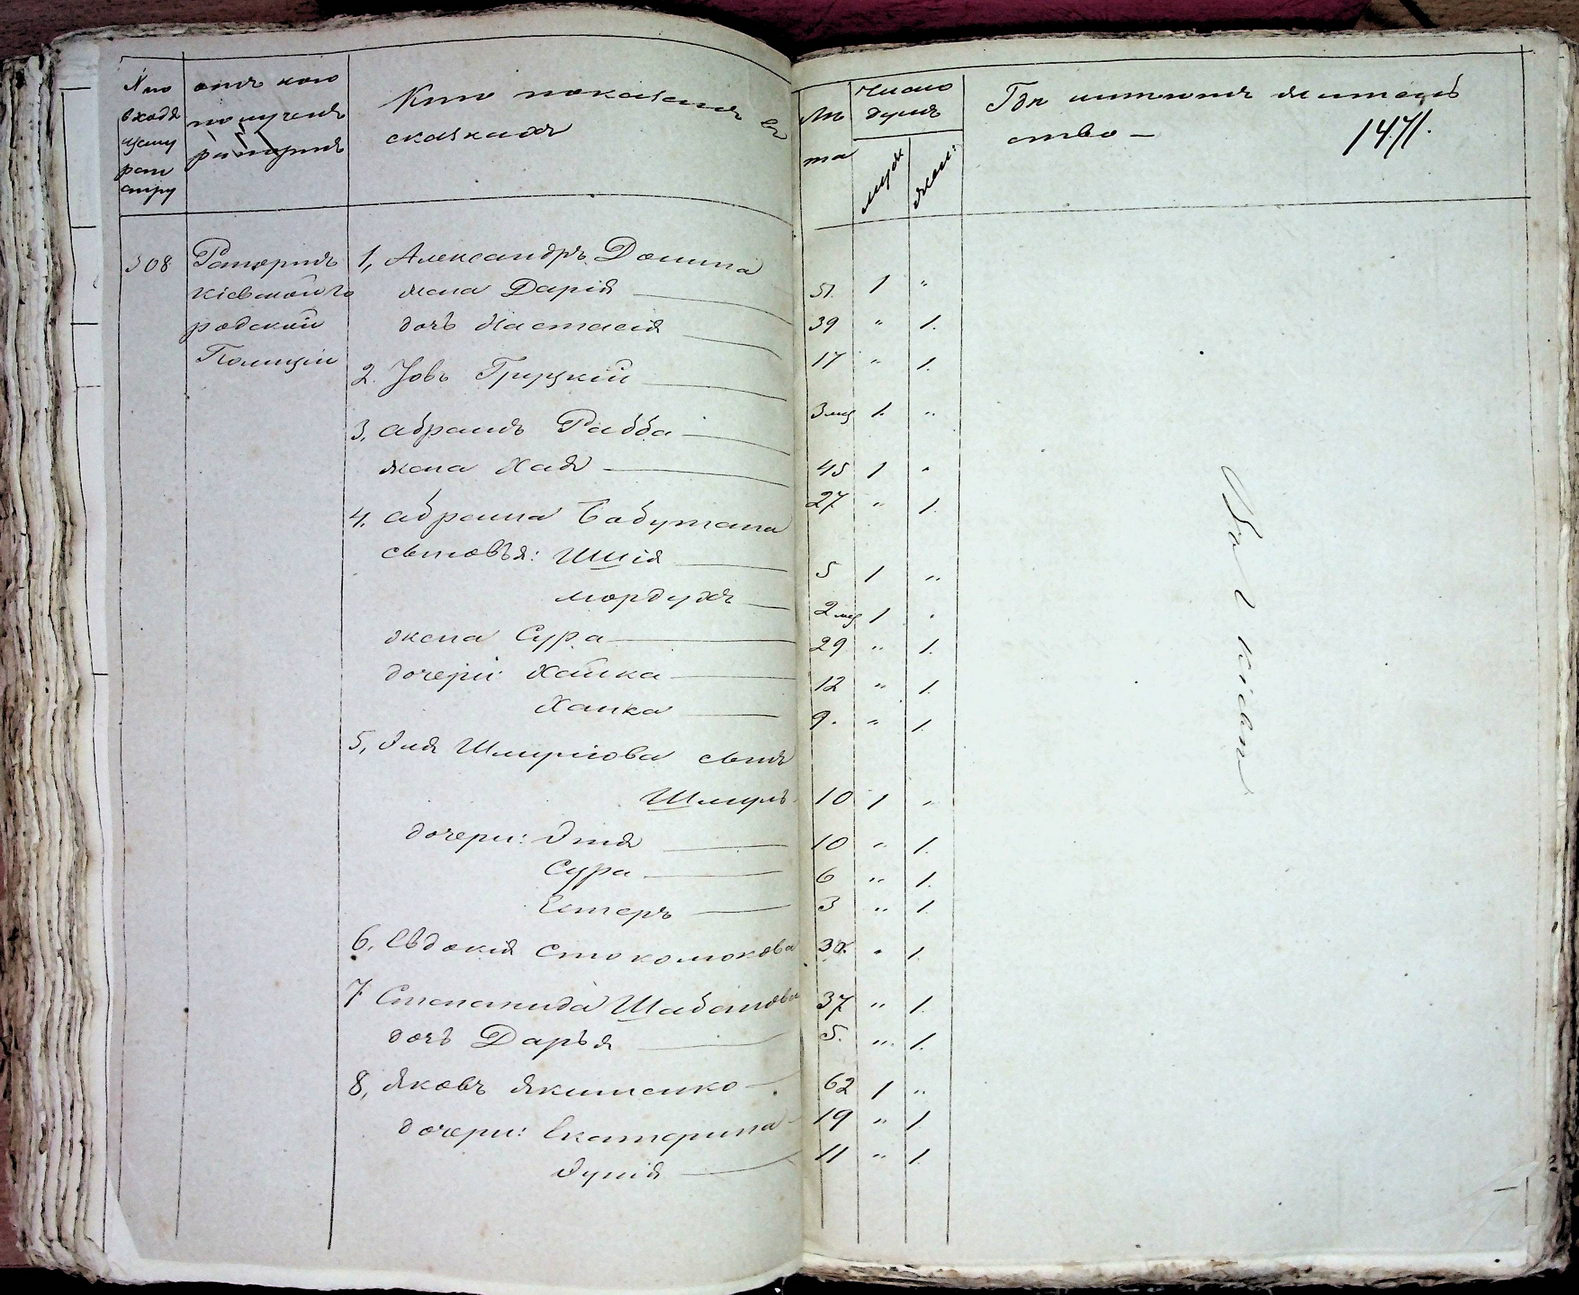 № по
входя
щему
реги
стру
отъ кого
полученъ
рапортъ
Кто показанъ въ
сказкахъ
Лѣ
та
Число
душъ
муж:
жен:
Гдѣ имѣютъ житель
ство —
1471.
308 Рапортъ 1, Александръ Домина 51. 1 "
Кіевской Го жена Дарія 39 " 1.
родской дочь Настасія 17 " 1.
Полиціи
2. Іовъ Грицкій 3 мѣ 1. "
3, Абрамъ Рабба 45 1 "
жена Хая 27 " 1.
4, Абрама
сыновья: Шмія 5 1 "
Мордухъ 2 мѣ 1 "
жена Сура 29 " 1.
дочери: Хайка 12 " 1.
Ханка 9. " 1.
5, Эля Шмуліова сынъ
Шмуль 10 1 "
дочери: Этя 10 " 1.
Сура 6 " 1.
Естеръ 3 " 1.
6, Евдокія " 1.
7 Степанида Шабанова 37 " 1.
дочь Дарья 5. " 1.
8, Яковъ Якименко 62 1 "
дочери: Екатерина 19 " 1
11 " 1.
Въ г. Кіевѣ